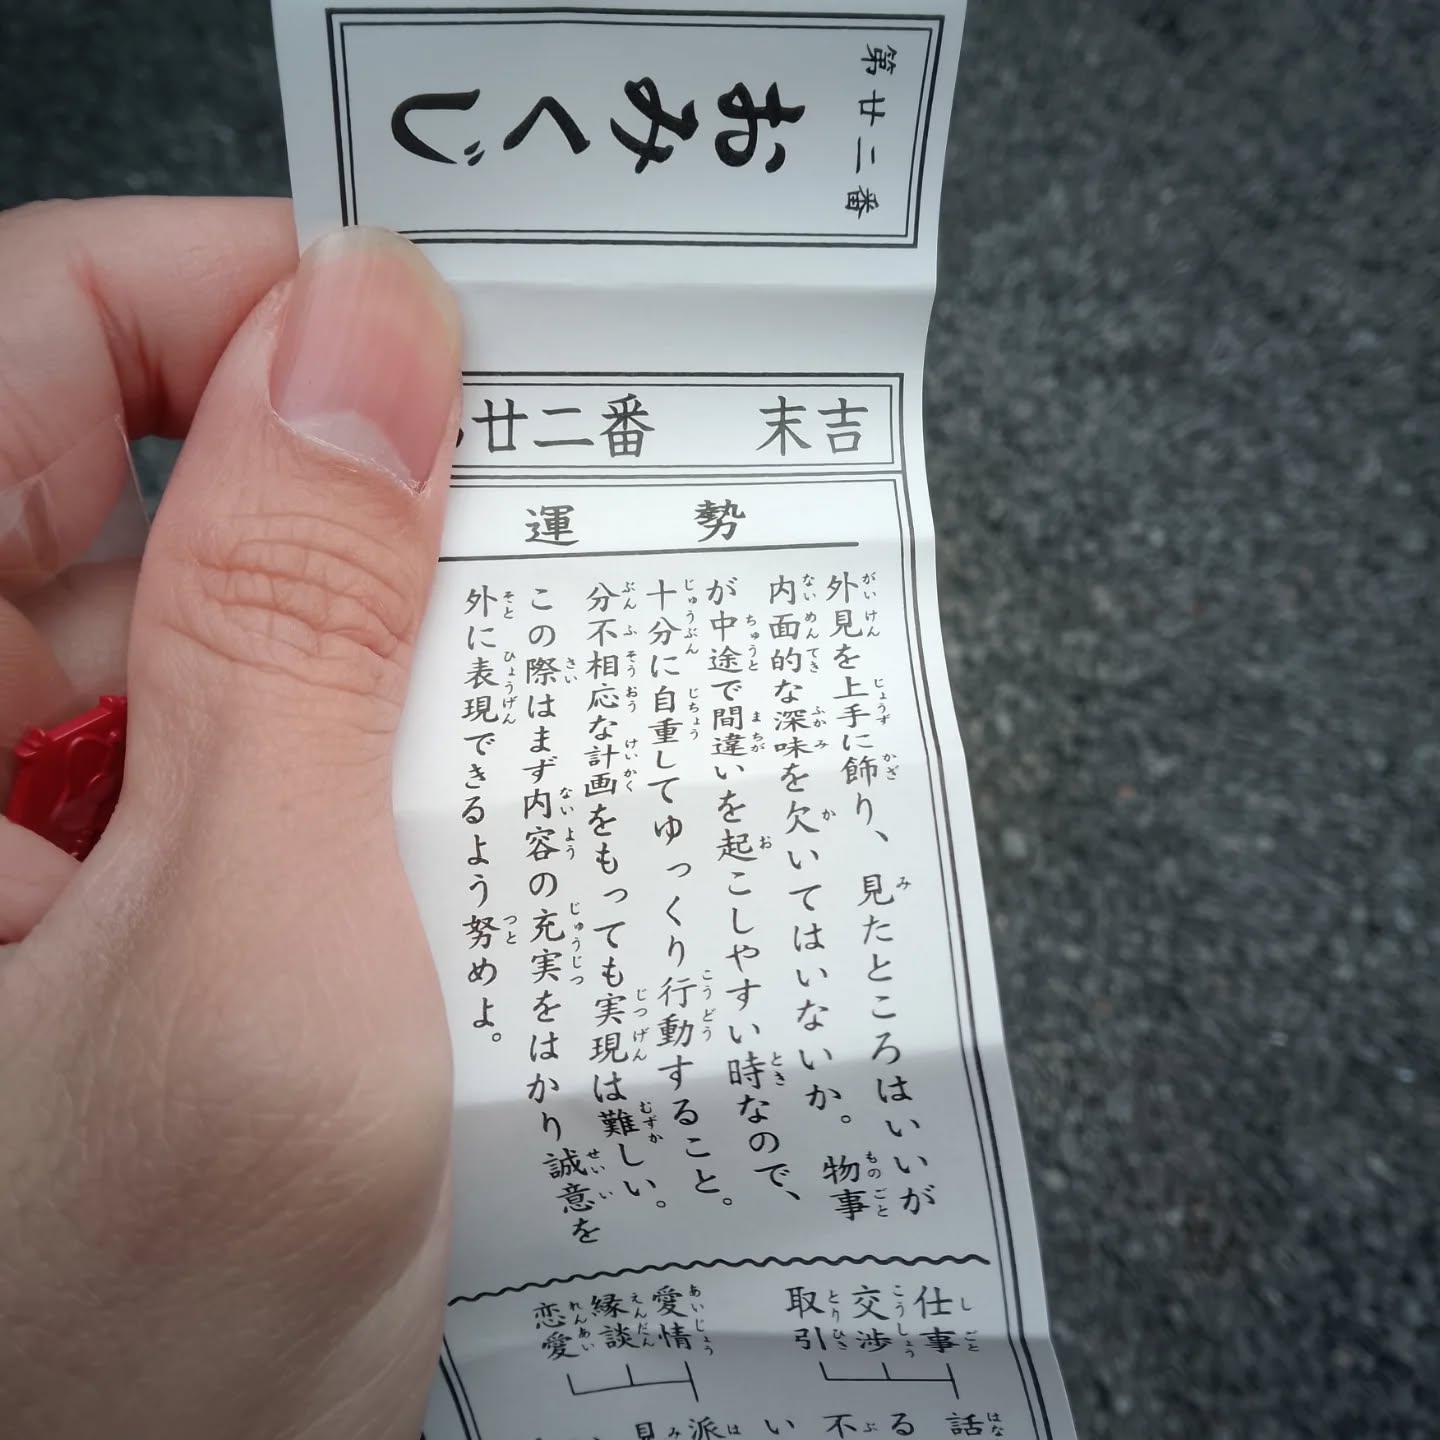 第廿二番
おみくじ
廿二番 末吉
運勢
外見を上手に飾り、見たところはいいが
内面的な深味を欠いてはいないか。物事
が中途で間違いを起こしやすい時なので、
十分に自重してゆっくり行動すること。
分不相応な計画をもっても実現は難しい。
この際はまず内容の充実をはかり誠意を
外に表現できるよう努めよ。
仕事
交渉
取引
愛情
縁談
恋愛
話
る
不
い
派
見